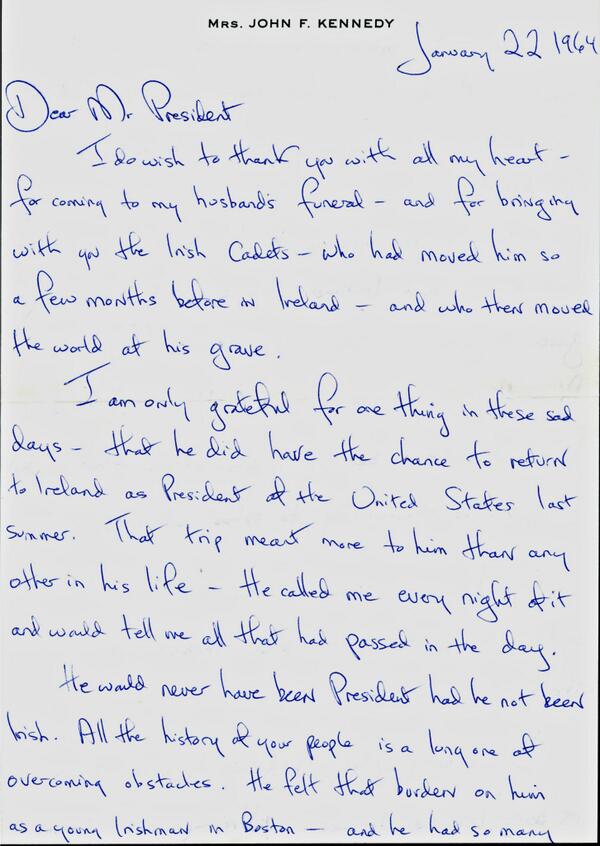 MRS. JOHN F. KENNEDY
January 22 1964
Dear Mr President
I do wish to thank you with all my heart –
for coming to my husband's funeral – and for bringing
with you the Irish Cadets – who had moved him so
a few months before in Ireland – and who then moved
the world at his grave.
I am only grateful for one thing in these sad
days – that he did have the chance to return
to Ireland as President of the United States last
summer. That trip meant more to him than any
other in his life – He called me every night of it
and would tell me all that had passed in the day.
He would never have been President had he not been
Irish. All the history of your people is a long one of
overcoming obstacles. He felt that burden on him
as a young Irishman in Boston – and he had so many